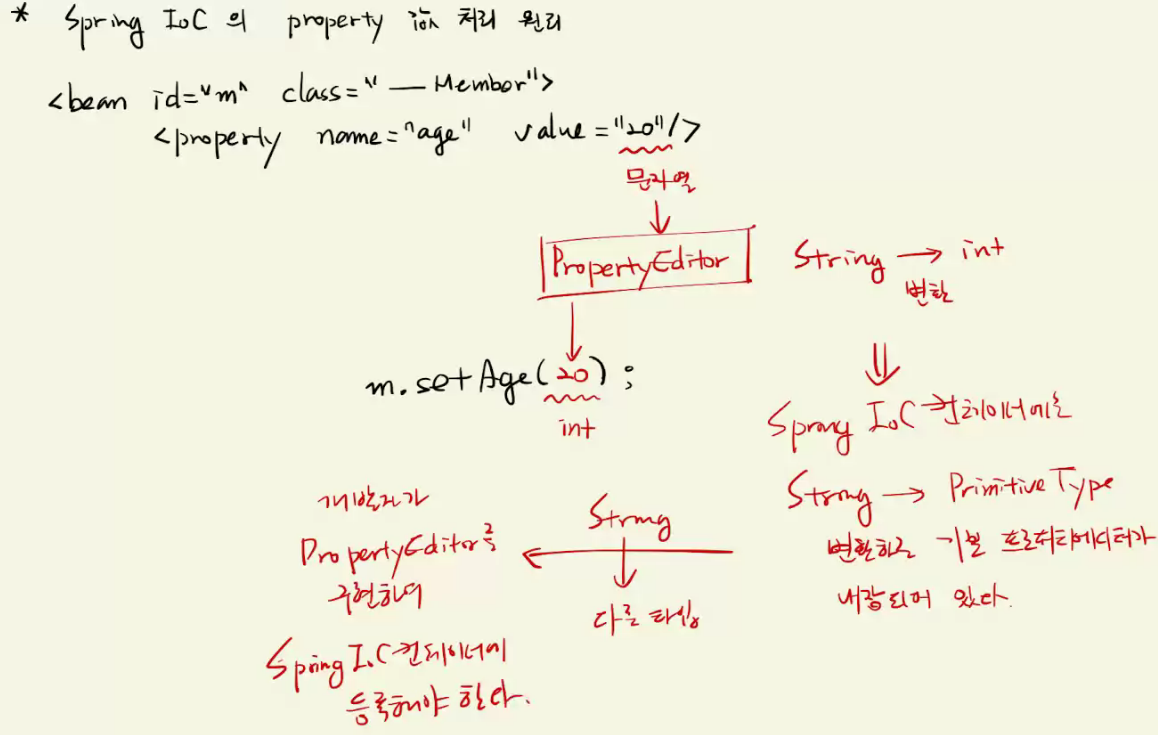 * Spring IoC 의 property 값 처리 원리
<bean id="m" class=" — Member">
<property name="age" value="20"/>
문자열
PropertyEditor
String → int
변환
m.setAge(20);
int
Spring IoC 컨테이너에는
String → Primitive Type
변환하는 기본 프로퍼티에디터가
내장되어 있다.
String
다른 타입
개발자가
PropertyEditor를
구현하여
Spring IoC 컨테이너에
등록해야 한다.